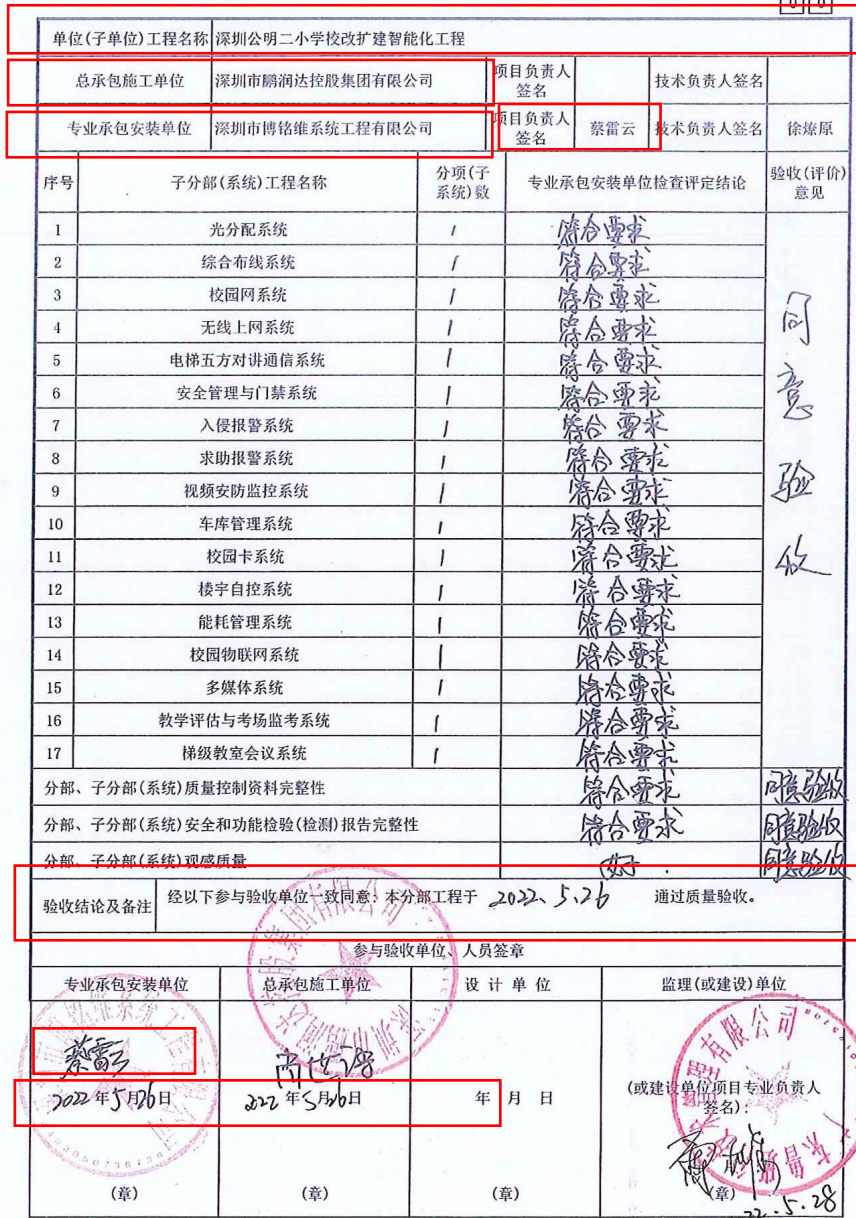 0 0
单位(子单位)工程名称 深圳公明二小学校改扩建智能化工程
总承包施工单位 深圳市鹏润达控股集团有限公司 项目负责人签名 技术负责人签名
专业承包安装单位 深圳市博铭维系统工程有限公司 项目负责人签名 蔡雷云 技术负责人签名 徐燎原
序号 子分部(系统)工程名称 分项(子系统)数 专业承包安装单位检查评定结论 验收(评价)意见
1 光分配系统 1 符合要求
2 综合布线系统 1 符合要求
3 校园网系统 1 符合要求
4 无线上网系统 1 符合要求
5 电梯五方对讲通信系统 1 符合要求
6 安全管理与门禁系统 1 符合要求
7 入侵报警系统 1 符合要求
8 求助报警系统 1 符合要求
9 视频安防监控系统 1 符合要求
10 车库管理系统 1 符合要求
11 校园卡系统 1 符合要求
12 楼宇自控系统 1 符合要求
13 能耗管理系统 1 符合要求
14 校园物联网系统 1 符合要求
15 多媒体系统 1 符合要求
16 教学评估与考场监考系统 1 符合要求
17 梯级教室会议系统 1 符合要求
同意验收
分部、子分部(系统)质量控制资料完整性 符合要求 同意验收
分部、子分部(系统)安全和功能检验(检测)报告完整性 符合要求 同意验收
分部、子分部(系统)观感质量 好 同意验收
验收结论及备注 经以下参与验收单位一致同意：本分部工程于 2022、5、26 通过质量验收。
参与验收单位、人员签章
专业承包安装单位 总承包施工单位 设计单位 监理(或建设)单位
蔡雷云
2022年5月26日 2022年5月26日 年 月 日 (或建设单位项目专业负责人签名)：
(章) (章) (章) (章)
22.5.28